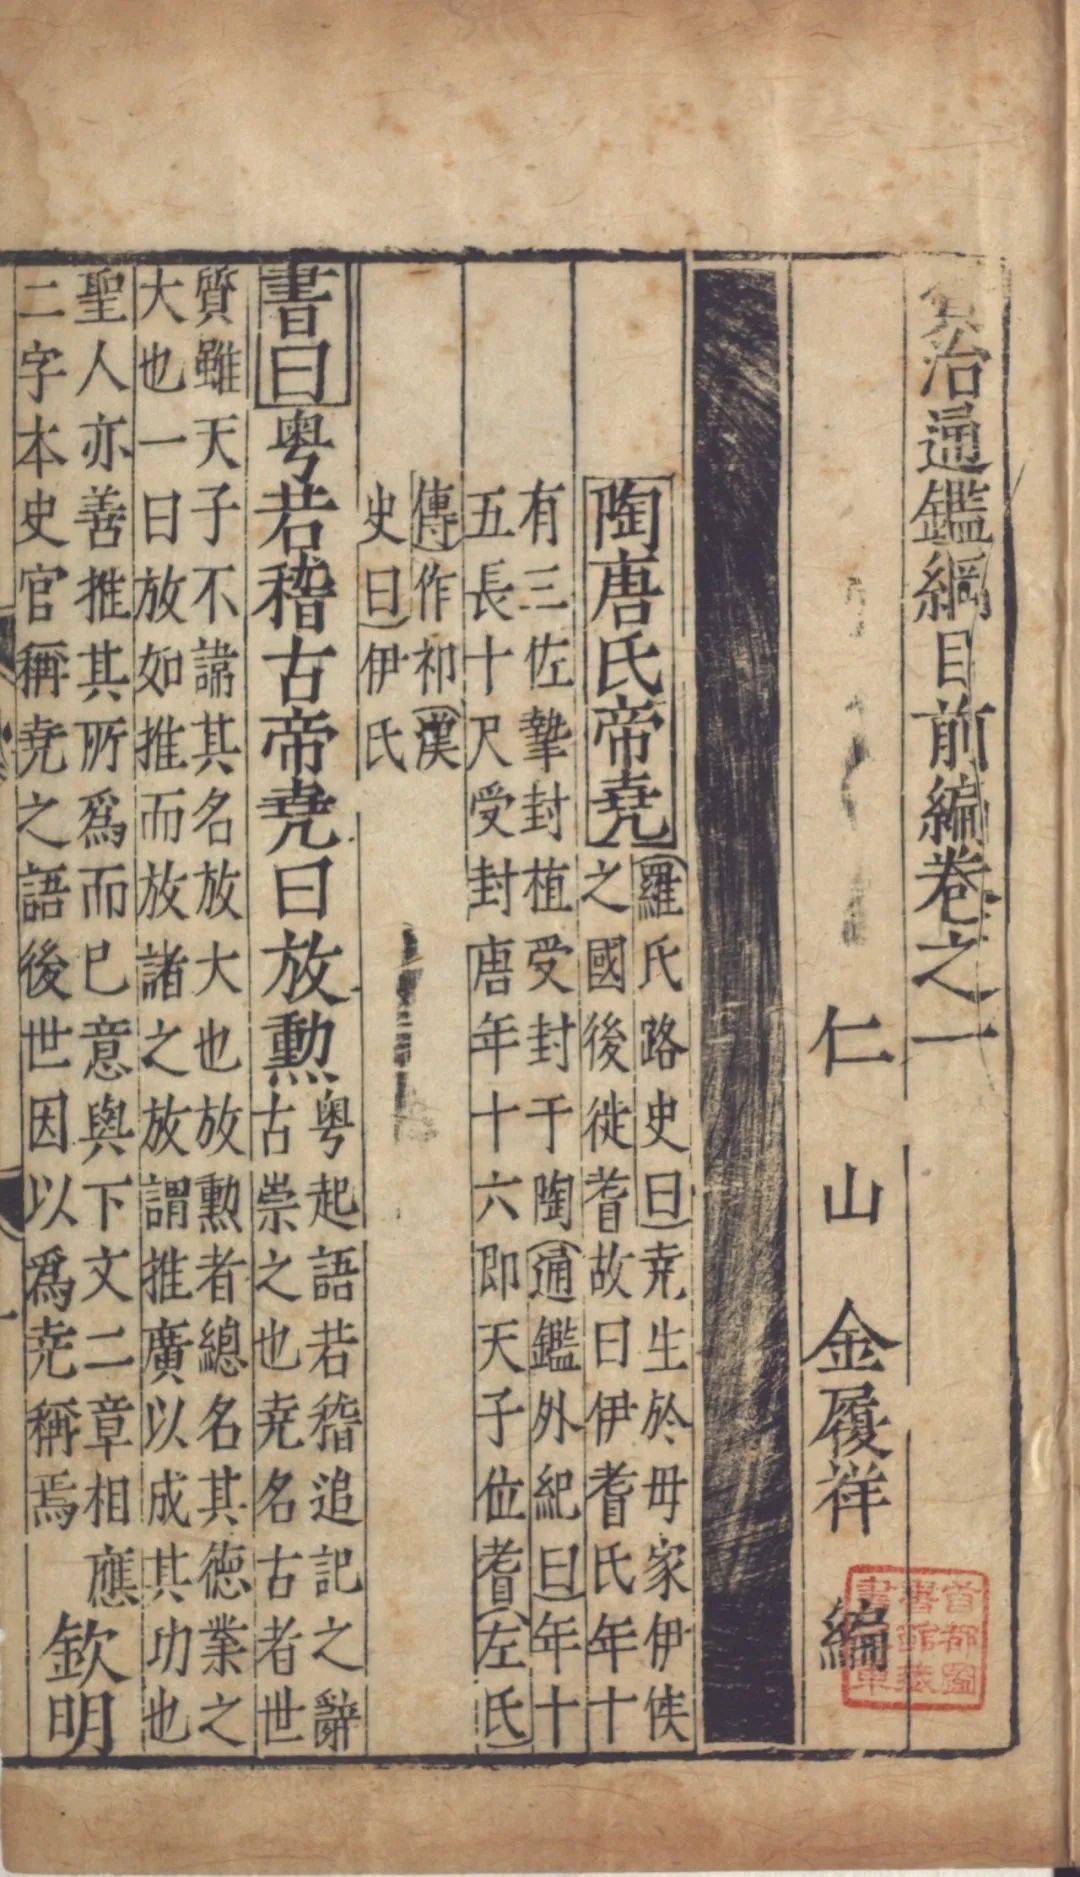 資治通鑑綱目前編卷之一
仁山金履祥編
陶唐氏帝堯
羅氏路史曰堯生於毋家伊侯
之國後徙耆故曰伊耆氏年十
有三佐摯封植受封于陶通鑑外紀曰年十
五長十尺受封唐年十六即天子位耆左氏
傳作祁漢
史曰伊氏
書曰粤若稽古帝堯曰放勲
粤起語若稽追記之辭
古崇之也堯名古者世
質雖天子不諱其名放大也放勲者總名其德業之
大也一曰放如推而放諸之放謂推廣以成其功也
聖人亦善推其所爲而已意與下文二章相應
二字本史官稱堯之語後世因以爲堯稱焉
欽明
首都圖
書館藏